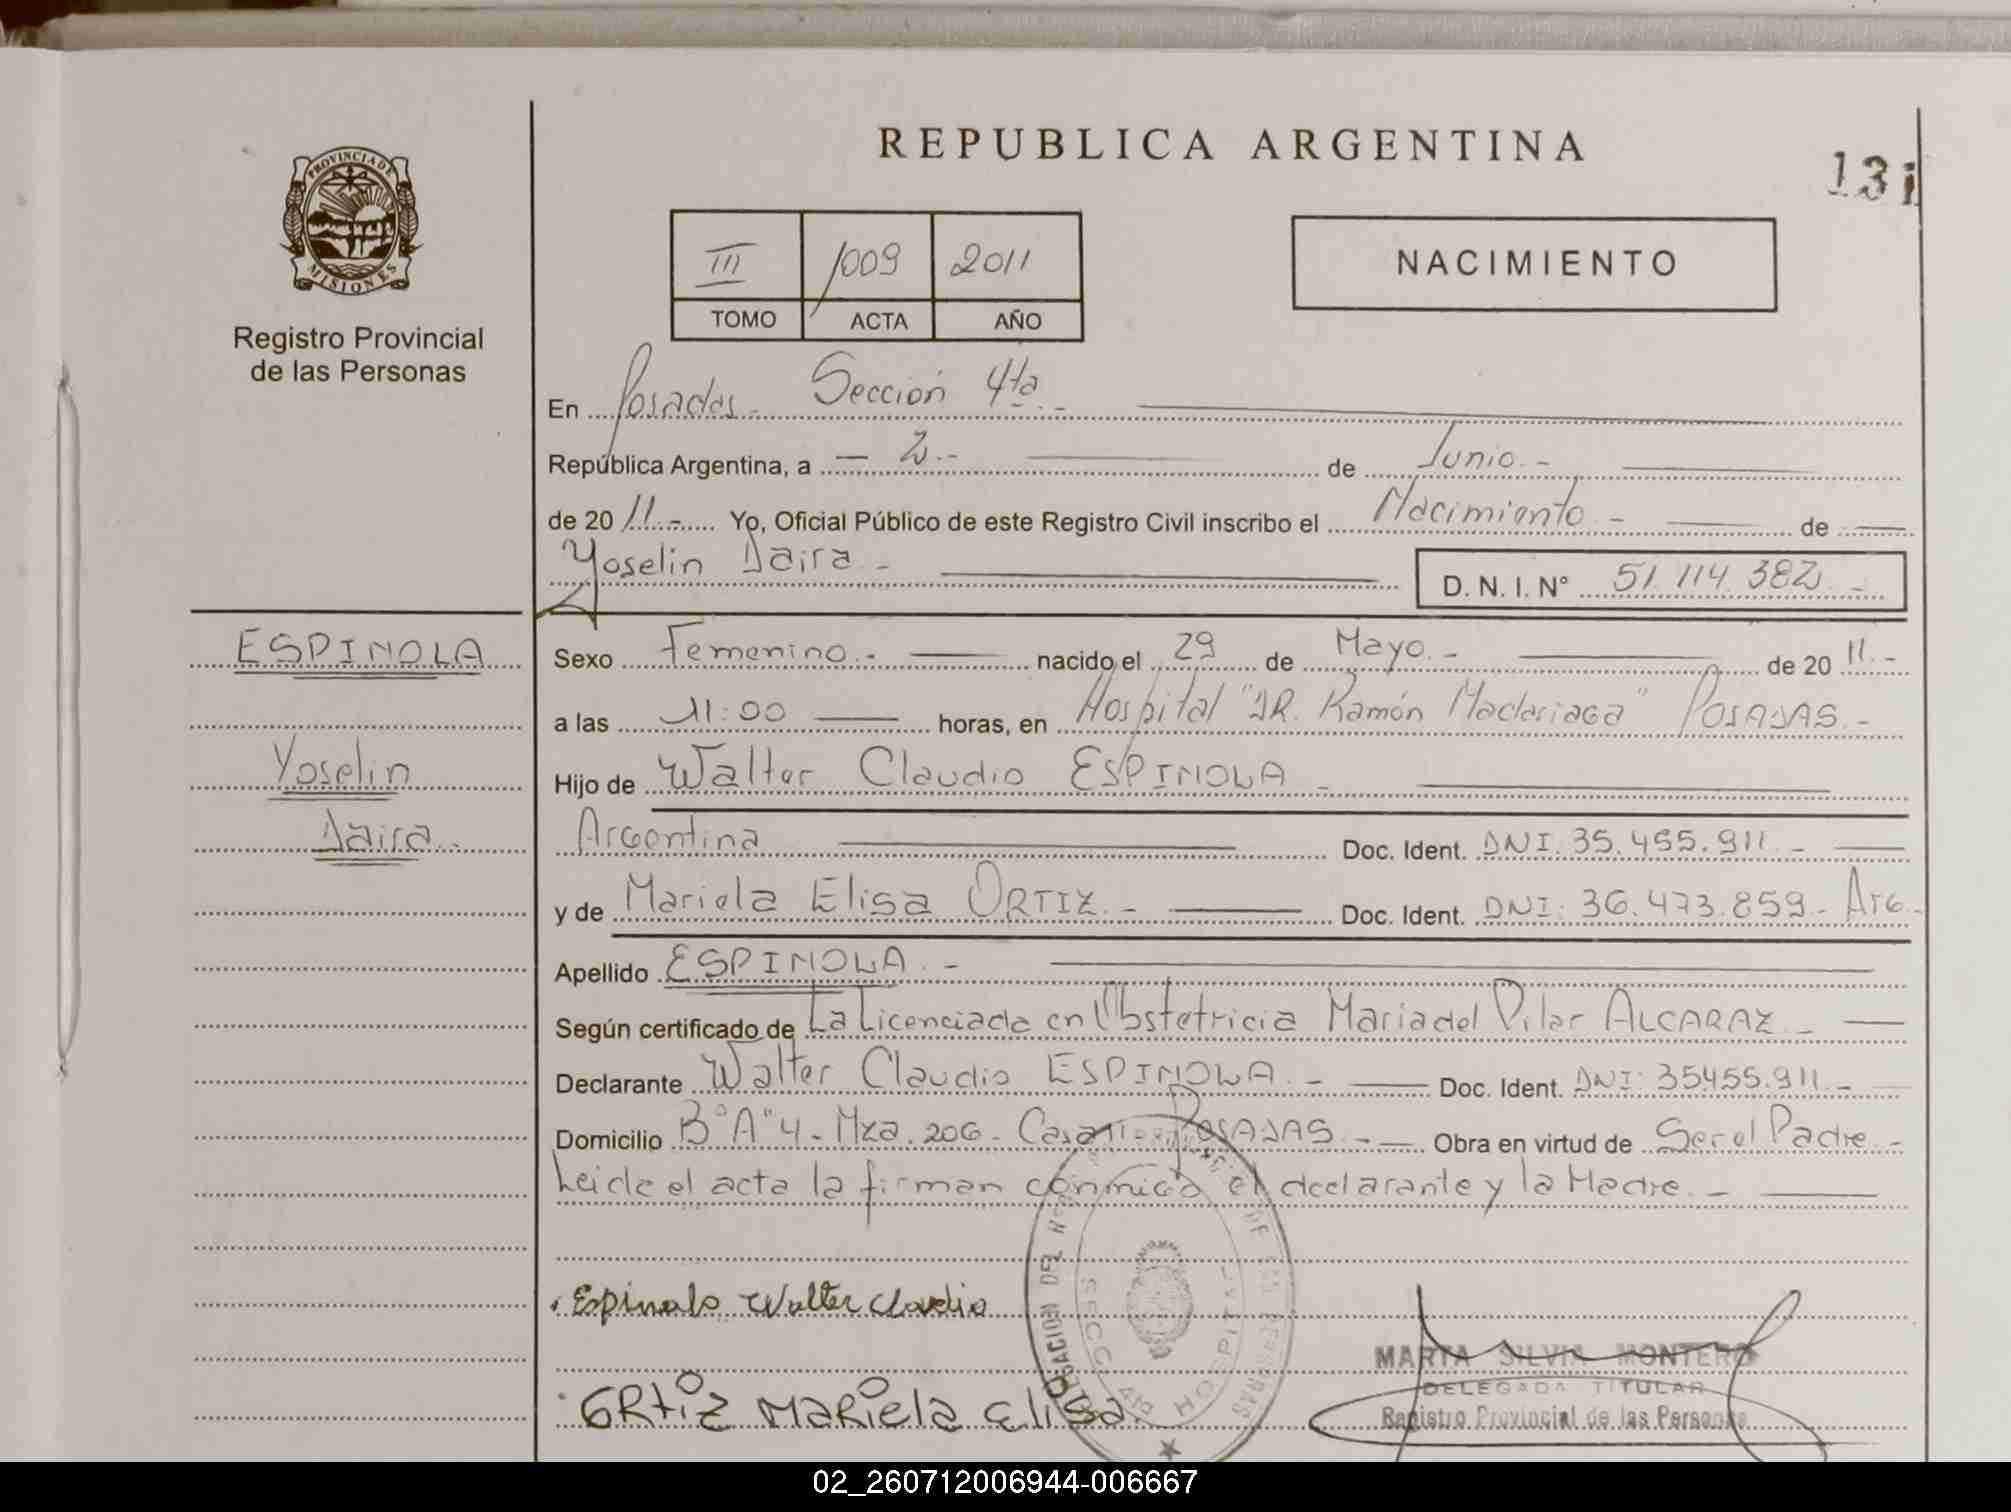 REPUBLICA ARGENTINA
13
PROVINCIA DE
MISIONES
Registro Provincial
de las Personas
III 1009 2011
TOMO ACTA AÑO
NACIMIENTO
En Posadas - Sección 4ta -
República Argentina, a - 2 - de Junio -
de 2011 - Yo, Oficial Público de este Registro Civil inscribo el Nacimiento - de
Yoselin Daira -
D. N. I. N° 51.114.382 -
ESPINOLA
Yoselin
Daira
Sexo Femenino - nacido el 29 de Mayo - de 2011 -
a las 11:00 horas, en Hospital "DR. Ramón Madariaga" POSADAS -
Hijo de Walter Claudio ESPINOLA -
Argentina Doc. Ident. DNI. 35.455.911 -
y de Mariela Elisa ORTIZ - Doc. Ident. DNI: 36.473.859 - Arg -
Apellido ESPINOLA -
Según certificado de La Licenciada en Obstetricia Maria del Pilar ALCARAZ -
Declarante Walter Claudio ESPINOLA - Doc. Ident. DNI: 35455.911 -
Domicilio B° "A" 4 - Mza. 206 - Casa POSADAS - Obra en virtud de Ser el Padre -
Leida el acta la firman conmigo el declarante y la Madre -
Espinola Walter Claudio
ORtiz MaRiela Elisa
SECC 4ta HOSPITAL
MARTA SILVIA MONTERO
DELEGADA TITULAR
Registro Provincial de las Personas
02_260712006944-006667